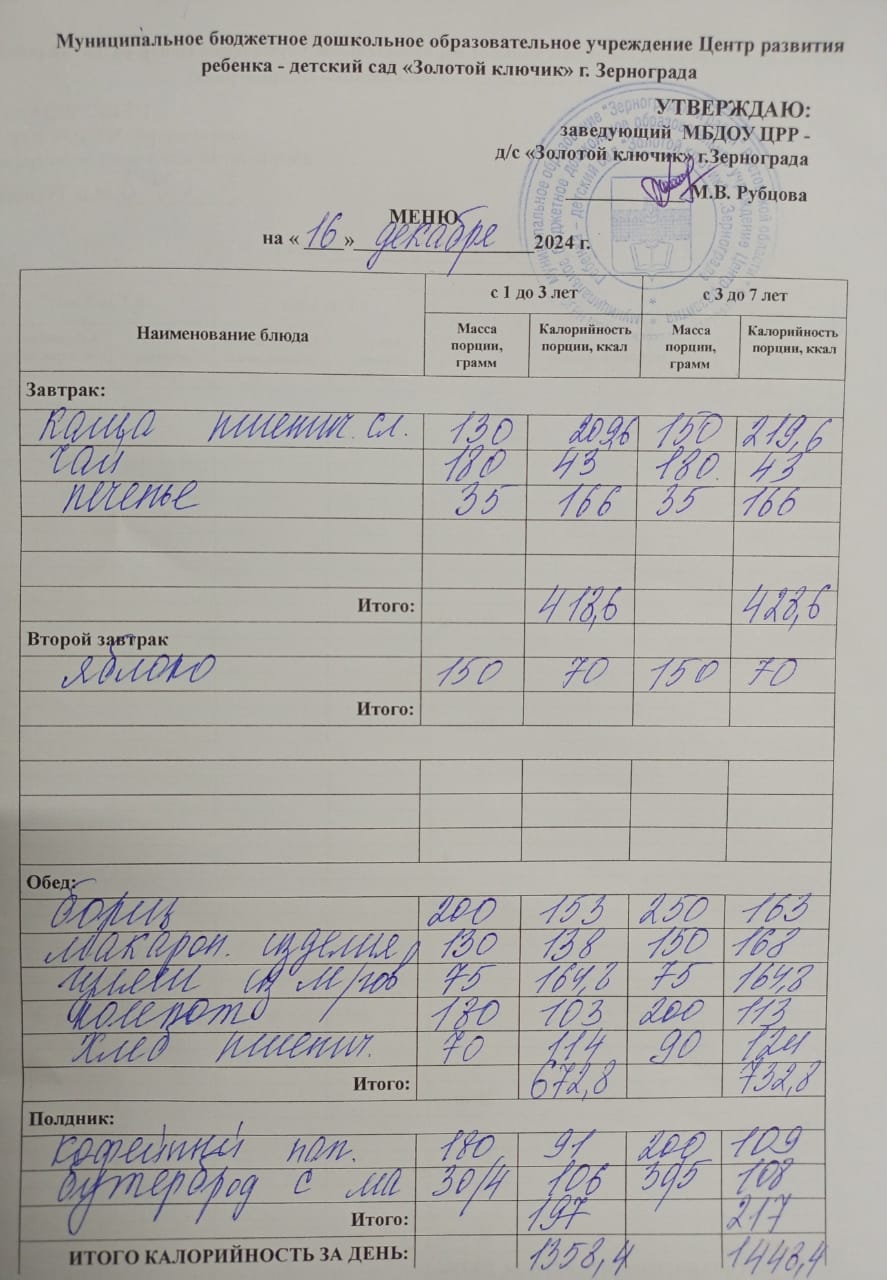 Муниципальное бюджетное дошкольное образовательное учреждение Центр развития
ребенка - детский сад «Золотой ключик» г. Зернограда
УТВЕРЖДАЮ:
заведующий МБДОУ ЦРР -
д/с «Золотой ключик» г.Зернограда
М.В. Рубцова
МЕНЮ
на « 16 » декабря 2024 г.
Наименование блюда с 1 до 3 лет с 3 до 7 лет
Масса порции, грамм Калорийность порции, ккал Масса порции, грамм Калорийность порции, ккал
Завтрак:
каша пшенич. сл. 130 209,6 150 219,6
чай 180 43 180 43
печенье 35 166 35 166
Итого: 418,6 428,6
Второй завтрак
яблоко 150 70 150 70
Итого:
Обед:
борщ 200 153 250 163
макарон. изделия 130 138 150 168
из 75 164,8 75 164,8
компот 180 103 200 113
хлеб пшенич. 70 114 90 124
Итого: 672,8 732,8
Полдник:
кофейный нап. 180 91 200 109
бутерброд с ма 30/4 106 108
Итого: 197 217
ИТОГО КАЛОРИЙНОСТЬ ЗА ДЕНЬ: 1358,4 1448,4